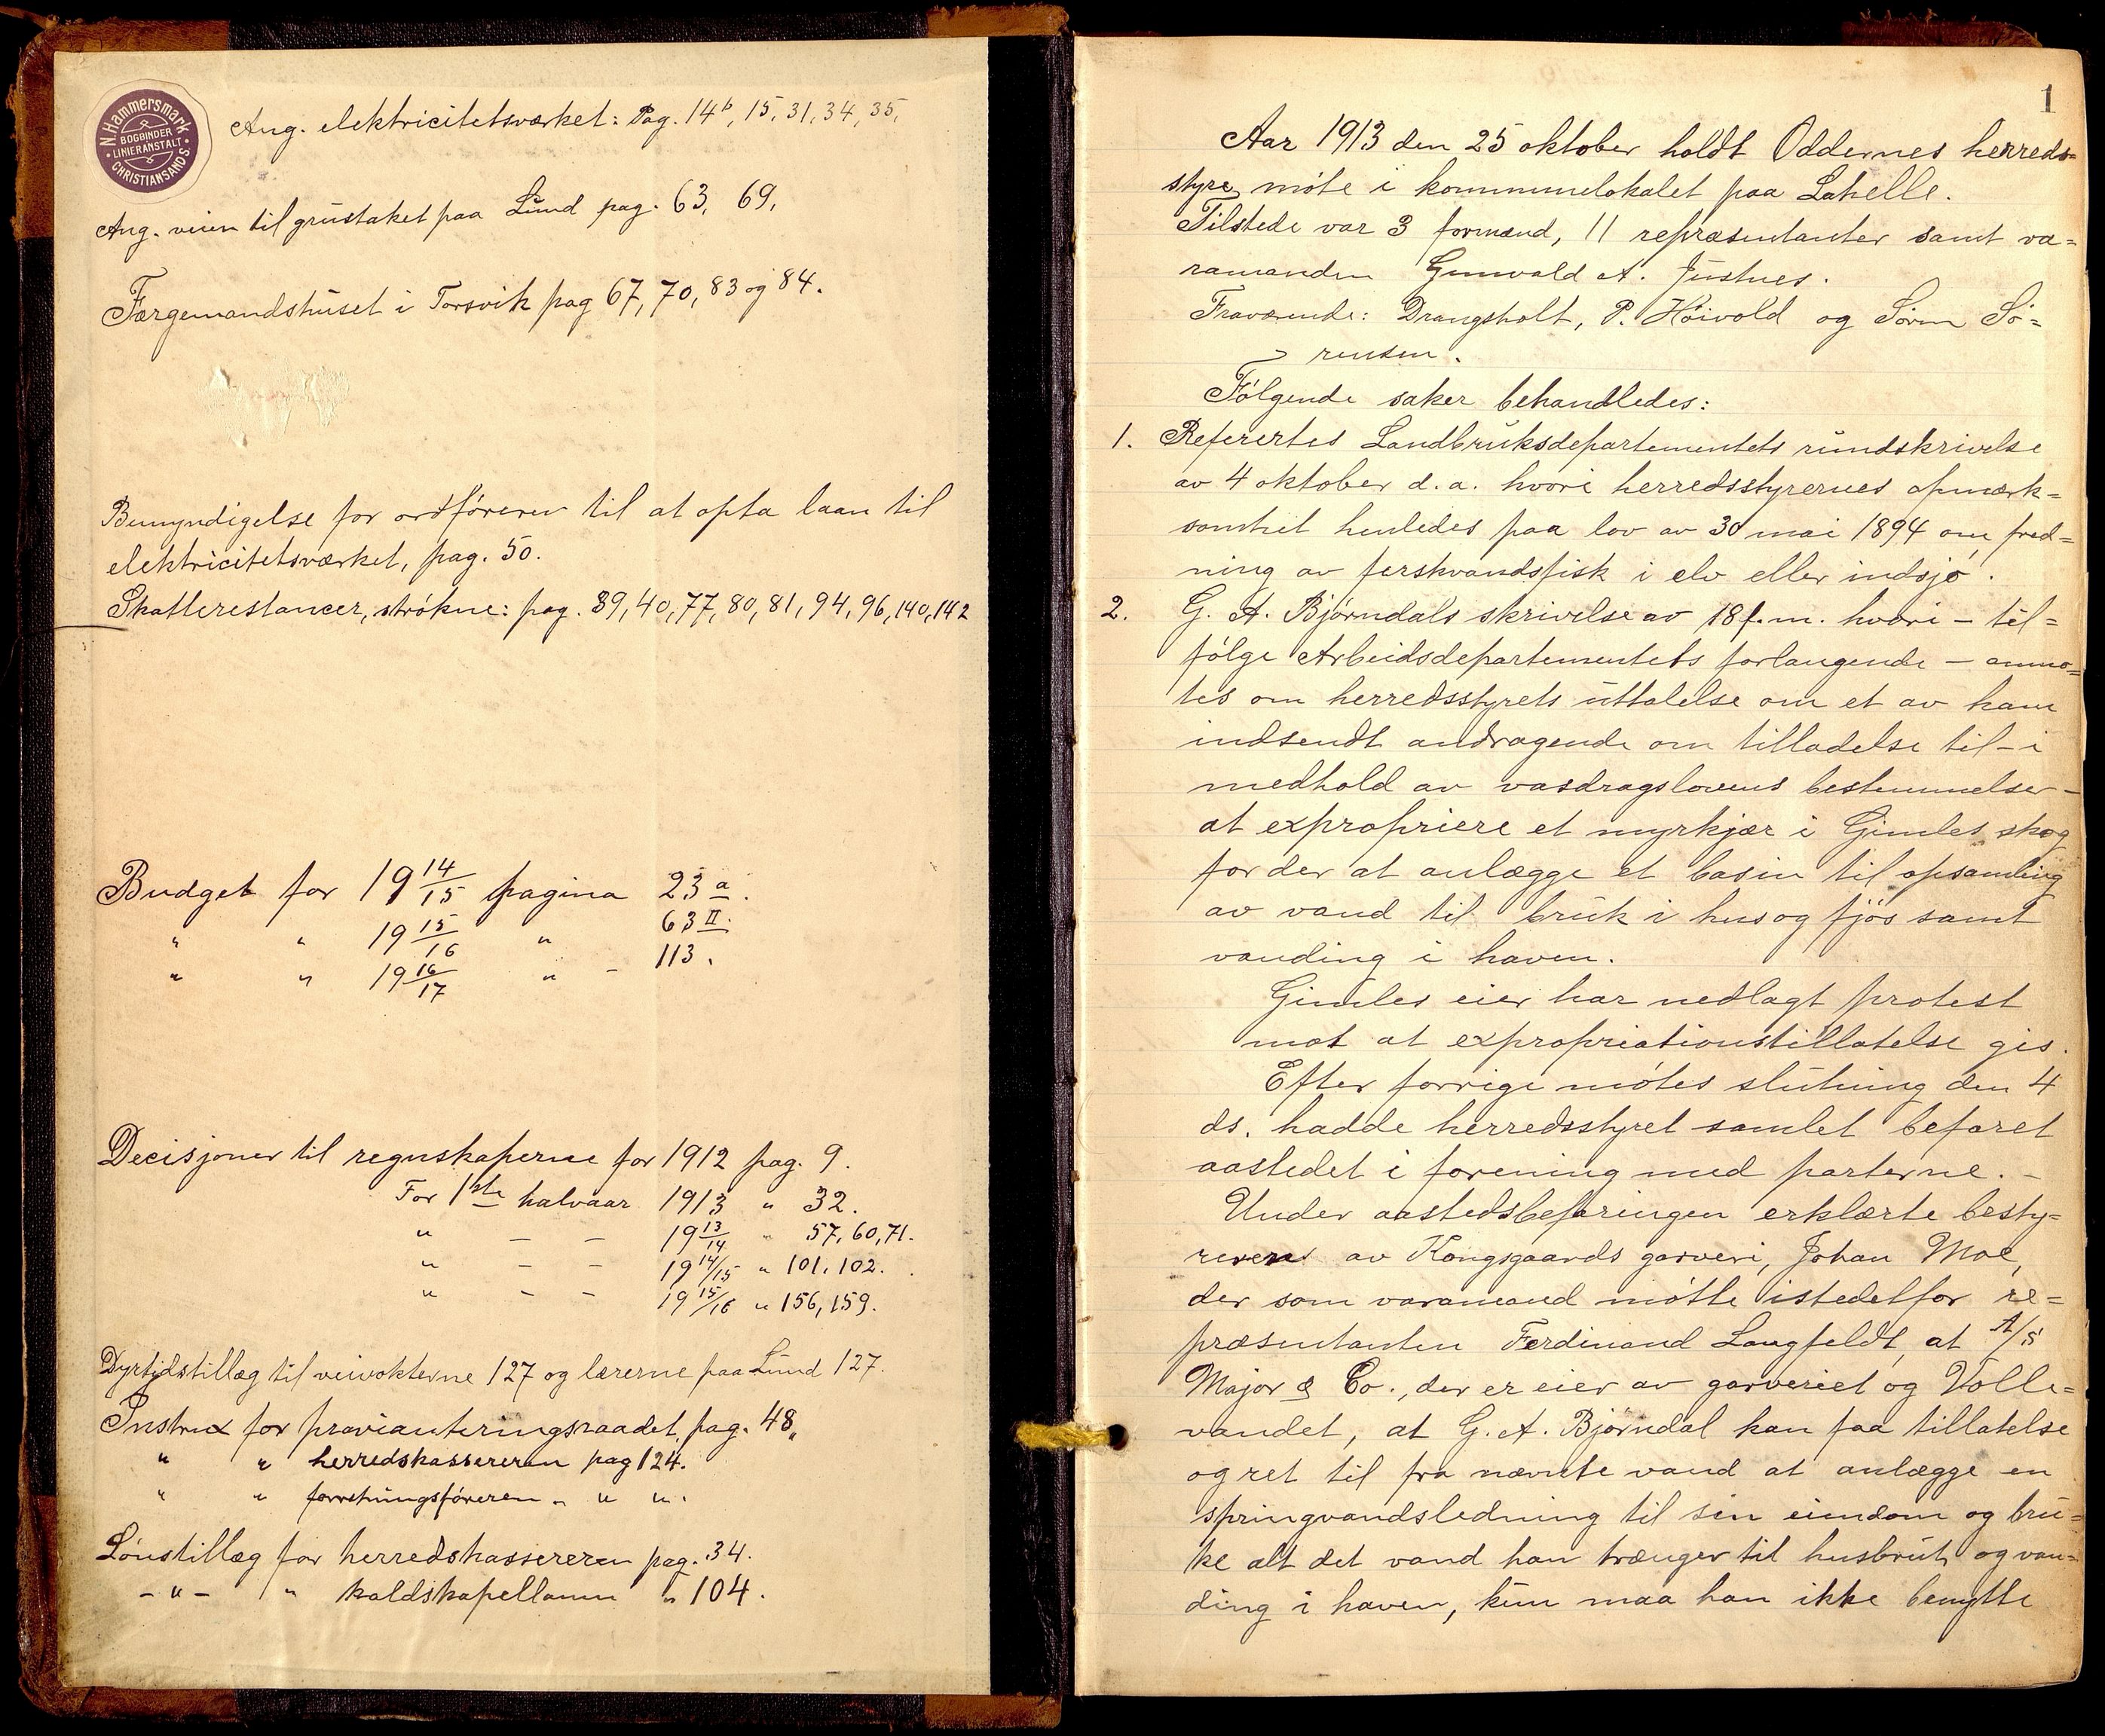 N. Hammersmark
BOGBINDER
LINIERANSTALT
CHRISTIANSANDS
Ang. elektricitetsværket: Pag. 14b, 15, 31, 34, 35,
Ang. veien til grustaket paa Lund pag. 63, 69,
Færgemandshuset i Torsvik pag 67, 70, 83 og 84.
Bemyndigelse for ordføreren til at opta laan til
elektricitetsværket, pag. 50.
Skatterestancer, strøkne: pag. 39, 40, 77, 80, 81, 94, 96, 140, 142
Budget for 19 14/15 pagina 23 a.
" " 19 15/16 " 63 II.
" " 19 16/17 " - 113.
Decisjoner til regnskaperne for 1912 pag. 9.
For 1ste halvaar 1913 " 32.
" - - 19 13/14 " 57, 60, 71.
" - - 19 14/15 " 101, 102.
" - - 19 15/16 " 156, 159.
Dyrtidstillæg til veivokterne 127 og lærerne paa Lund 127.
Instrux for provianteringsraadet, pag. 48,
" " herredskassereren pag 124.
" " forretningsføreren " " ".
Lønstillæg for herredskassereren pag. 34.
- " - " kaldskapellanen " 104.
1
Aar 1913 den 25 oktober holdt Oddernes herreds=
styre møte i kommunelokalet paa Lahelle.
Tilstede var 3 formænd, 11 repræsentanter samt va=
ramanden Gunvald A. Justnes.
Fraværende: Drangsholt, P. Høivold og Søren Sø=
rensen.
Følgende saker behandledes:
1. Referertes Landbruksdepartementets rundskrivelse
av 4 oktober d.a. hvori herredsstyrernes opmærk=
somhet henledes paa lov av 30 mai 1894 om fred=
ning av ferskvandsfisk i elv eller indsjø.
2. G. A. Bjørndals skrivelse av 18 f.m. hvori – til=
følge Arbeidsdepartementets forlangende – anmo=
tes om herredsstyrets uttalelse om et av ham
indsendt andragende om tilladelse til – i
medhold av vasdragslovens bestemmelser –
at expropriere et myrkjær i Gimles skog
for der at anlægge et basin til opsamling
av vand til bruk i hus og fjøs samt
vanding i haven.
Gimles eier har nedlagt protest
mot at expropriationstillatelse gis.
Efter forrige møtes slutning den 4
ds. hadde herredsstyret samlet befaret
aastedet i forening med parterne. –
Under aastedsbefaringen erklærte besty=
reren av Kongsgaards garveri, Johan Moe,
der som varamand møtte istedetfor re=
præsentanten Ferdinand Langfeldt, at A/S
Major & Co., der er eier av garveriet og Volle=
vandet, at G. A. Bjørndal kan faa tillatelse
og ret til fra nævnte vand at anlægge en
springvandsledning til sin eiendom og bru=
ke alt det vand han trænger til husbruk og van=
ding i haven, kun maa han ikke benytte